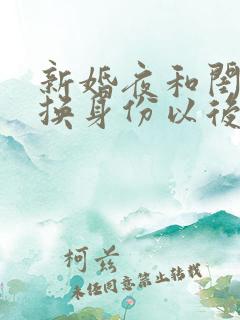 新婚夜和閨
換身份以後
柯兹
未经同意禁止转载